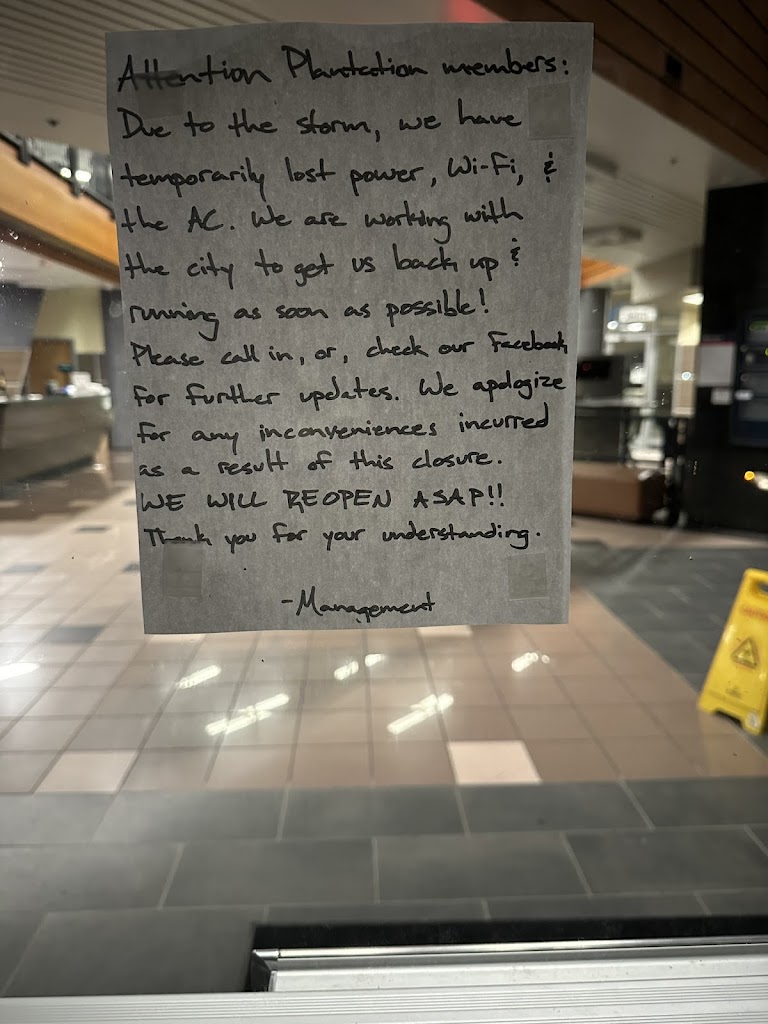 Attention Plantation members:
Due to the storm, we have
temporarily lost power, Wi-Fi, &
the AC. We are working with
the city to get us back up &
running as soon as possible!
Please call in, or, check our Facebook
for further updates. We apologize
for any inconveniences incurred
as a result of this closure.
WE WILL REOPEN ASAP!!
Thank you for your understanding.
-Management